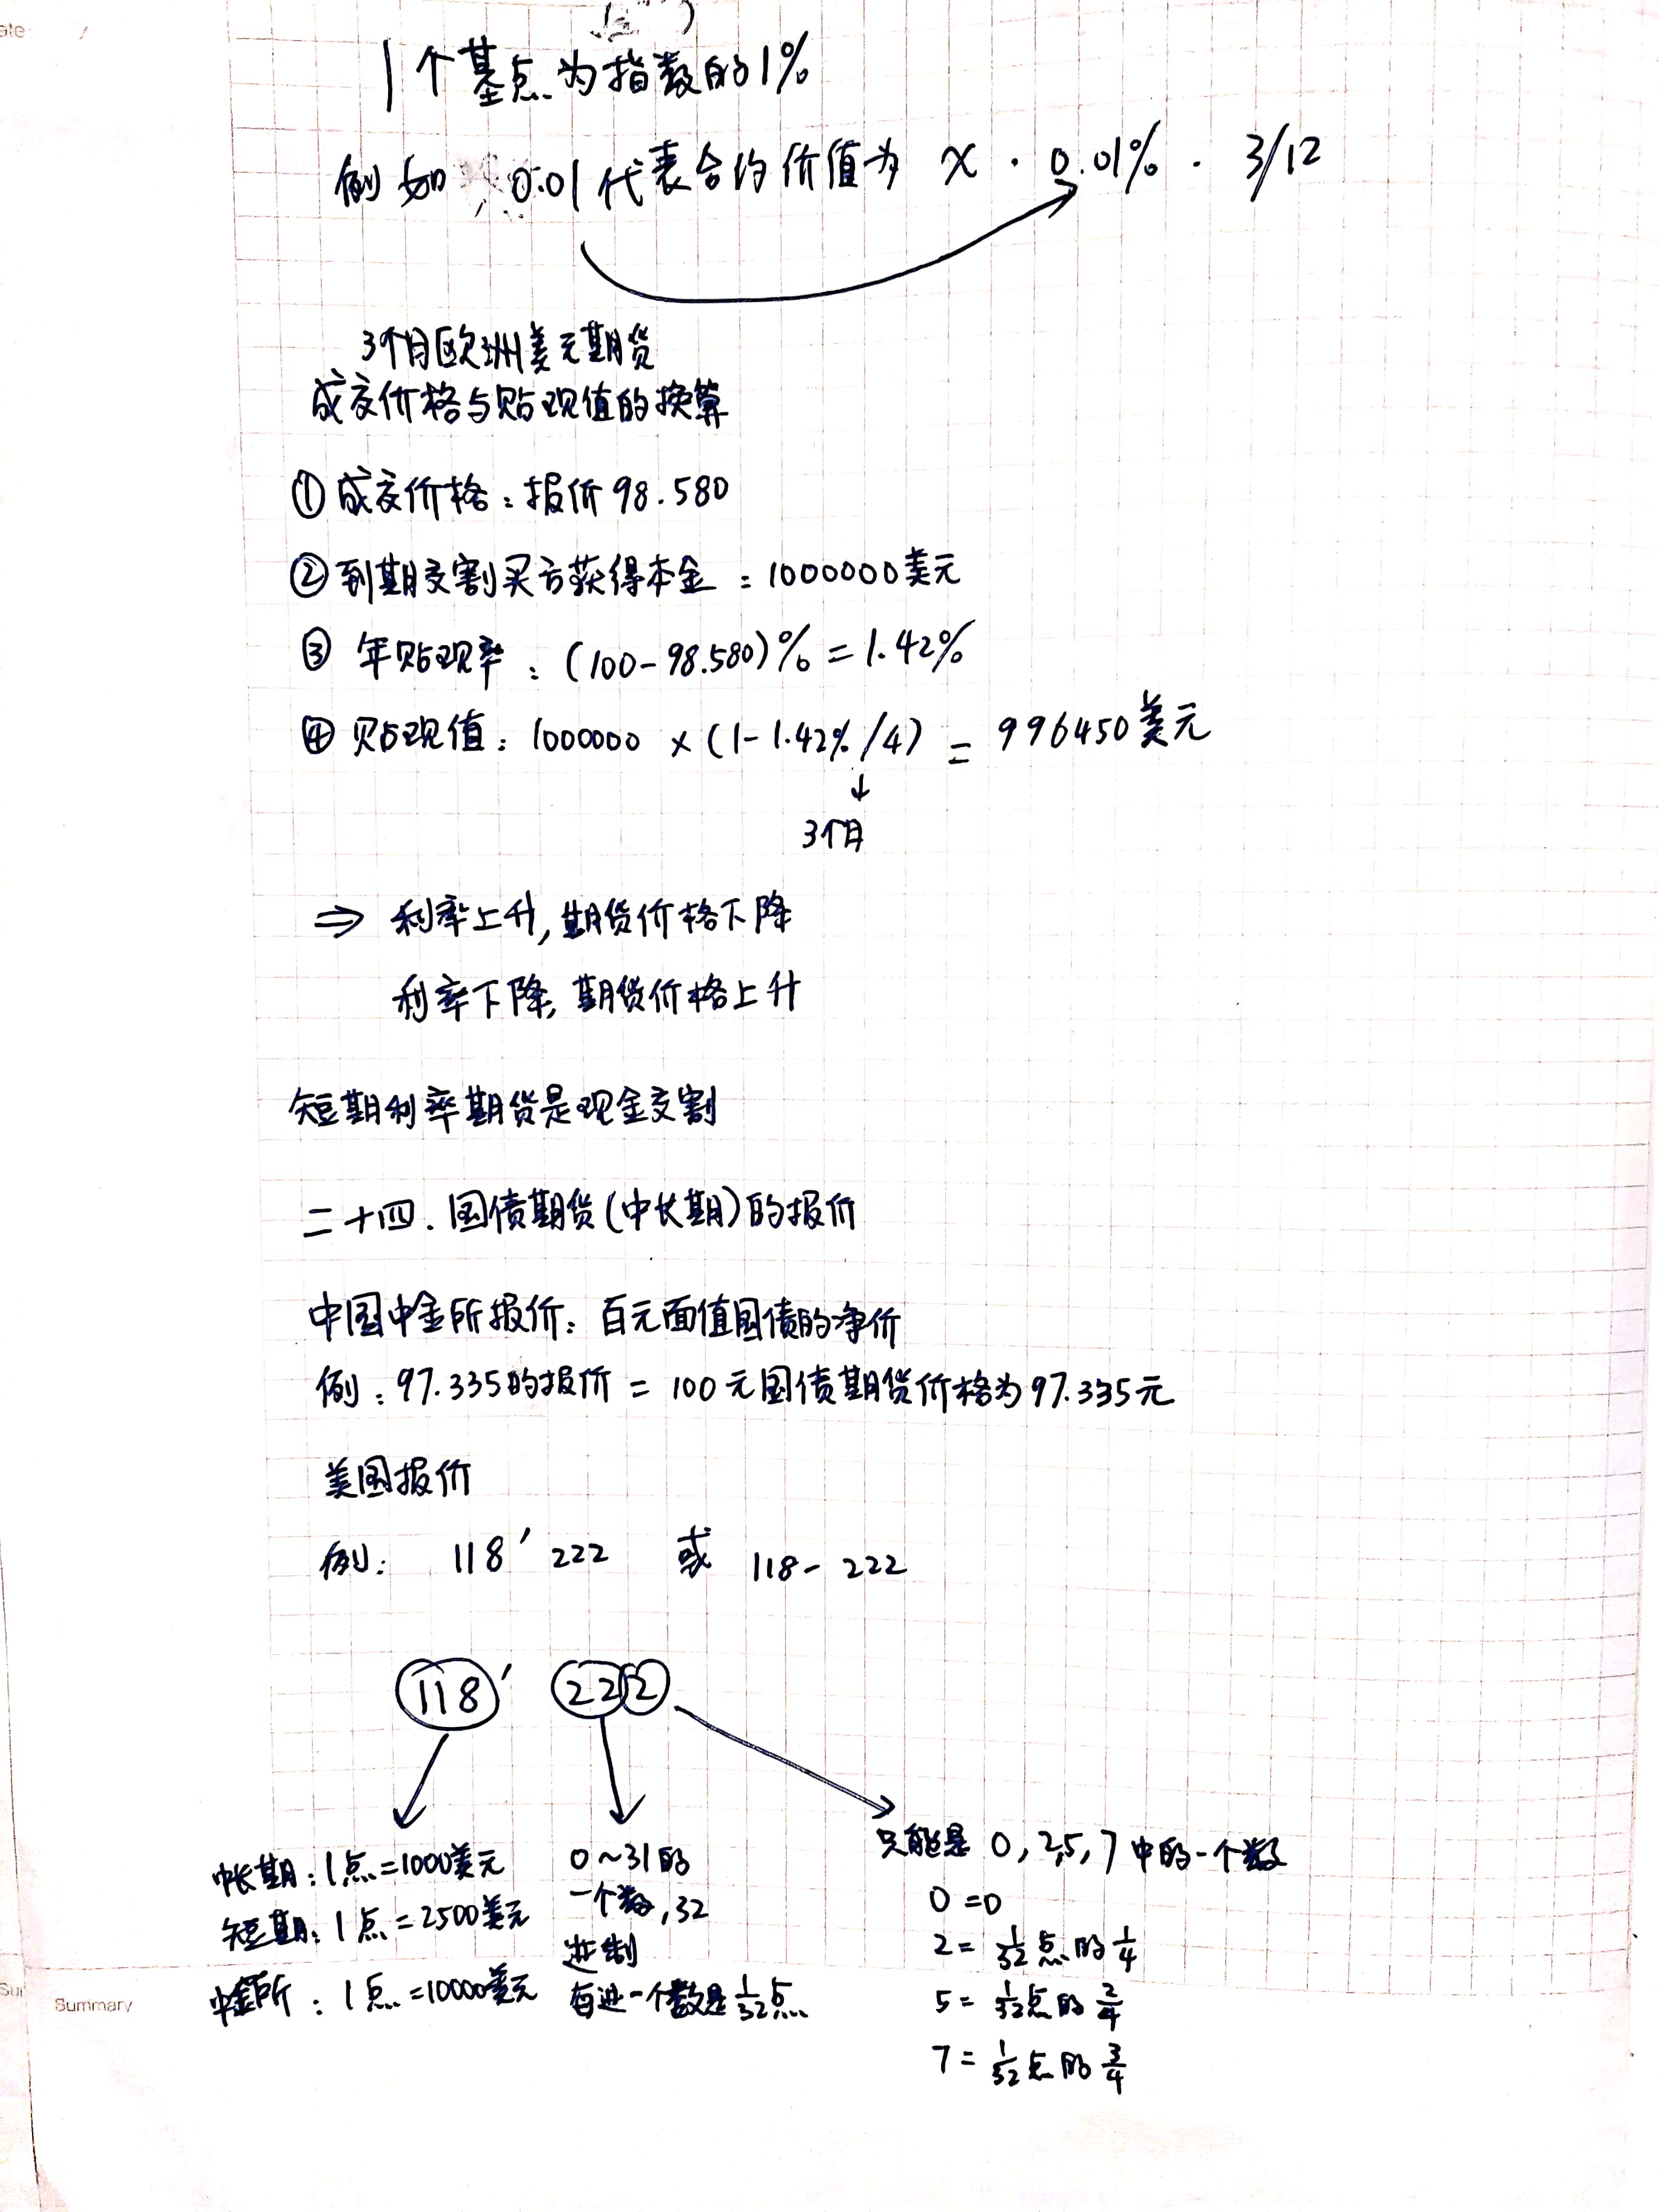 1个基点为指数的1%
例如 0.01代表合约价值为 x · 0.01% · 3/12
3个月欧洲美元期货
成交价格与贴现值的换算
① 成交价格：报价98.580
② 到期交割买方获得本金：1000000美元
③ 年贴现率：(100-98.580)% = 1.42%
④ 贴现值：1000000 × (1-1.42%/4) = 996450美元
↓
3个月
⇒ 利率上升,期货价格下降
利率下降,期货价格上升
短期利率期货是现金交割
二十四.国债期货(中长期)的报价
中国中金所报价：百元面值国债的净价
例：97.335的报价 = 100元国债期货价格为97.335元
美国报价
例： 118′222 或 118-222
118′ 222
中长期：1点=1000美元
短期：1点=2500美元
中金所：1点=10000美元
0~31的
一个数,32
进制
每进一个数是1/32点
只能是 0,2,5,7 中的一个数
0=0
2= 1/32点的1/4
5= 1/32点的2/4
7= 1/32点的3/4
Summary